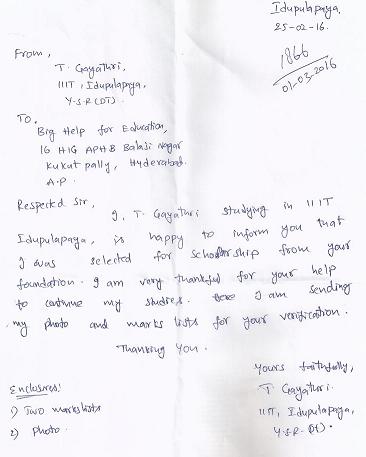 Idupulapaya,
25-02-16.
1866
01-03-2016
From,
T. Gayathri,
IIIT, Idupulapaya,
Y.S.R (DT).
TO,
Big Help for Education,
IG HIG APHB Balaji Nagar
Kukut pally, Hyderabad.
A.P.
Respected Sir,
I, T. Gayathri studying in IIIT
Idupulapaya, is happy to inform you that
I was selected for scholarship from your
foundation. I am very thankful for your help
to continue my studies. I am sending
my photo and marks lists for your verification.
Thanking You.
Yours faithfully,
T Gayathri.
IIIT, Idupulapaya,
Y.S.R. (Dt).
Enclosures:
1) Two marks lists
2) Photo.